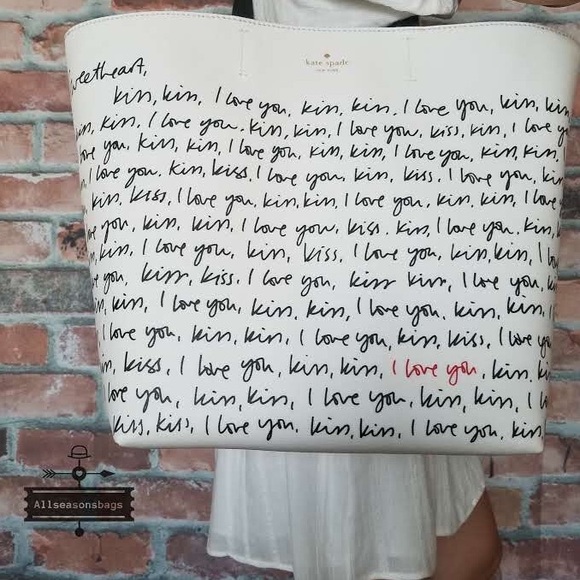 kate spade
NEW YORK
sweetheart,
kiss, kiss, I love you, kiss, kiss, I love you, kiss, kiss
kiss, kiss, I love you, kiss, kiss, I love you, kiss, kiss, I love you
love you, kiss, kiss, I love you, kiss, kiss, I love you, kiss, kiss,
I love you, kiss, kiss, I love you, kiss, kiss, I love you, kiss
kiss, kiss, I love you, kiss, kiss, I love you, kiss, kiss, I love
love you, kiss, kiss, I love you, kiss, kiss, I love you, kiss,
kiss, kiss, I love you, kiss, kiss, I love you, kiss, kiss, I
love you, kiss, kiss, I love you, kiss kiss, I love you,
kiss, kiss, I love you, kiss, kiss, I love you, kiss, kiss,
I love you, kiss, kiss, I love you, kiss, kiss, I love
kiss, I love you, kiss, kiss, I love you, kiss,
love you, kiss, kiss, I love you, kiss, kiss, I
kiss, kiss, I love you, kiss, kiss, I love you, kiss,
Allseasonsbags